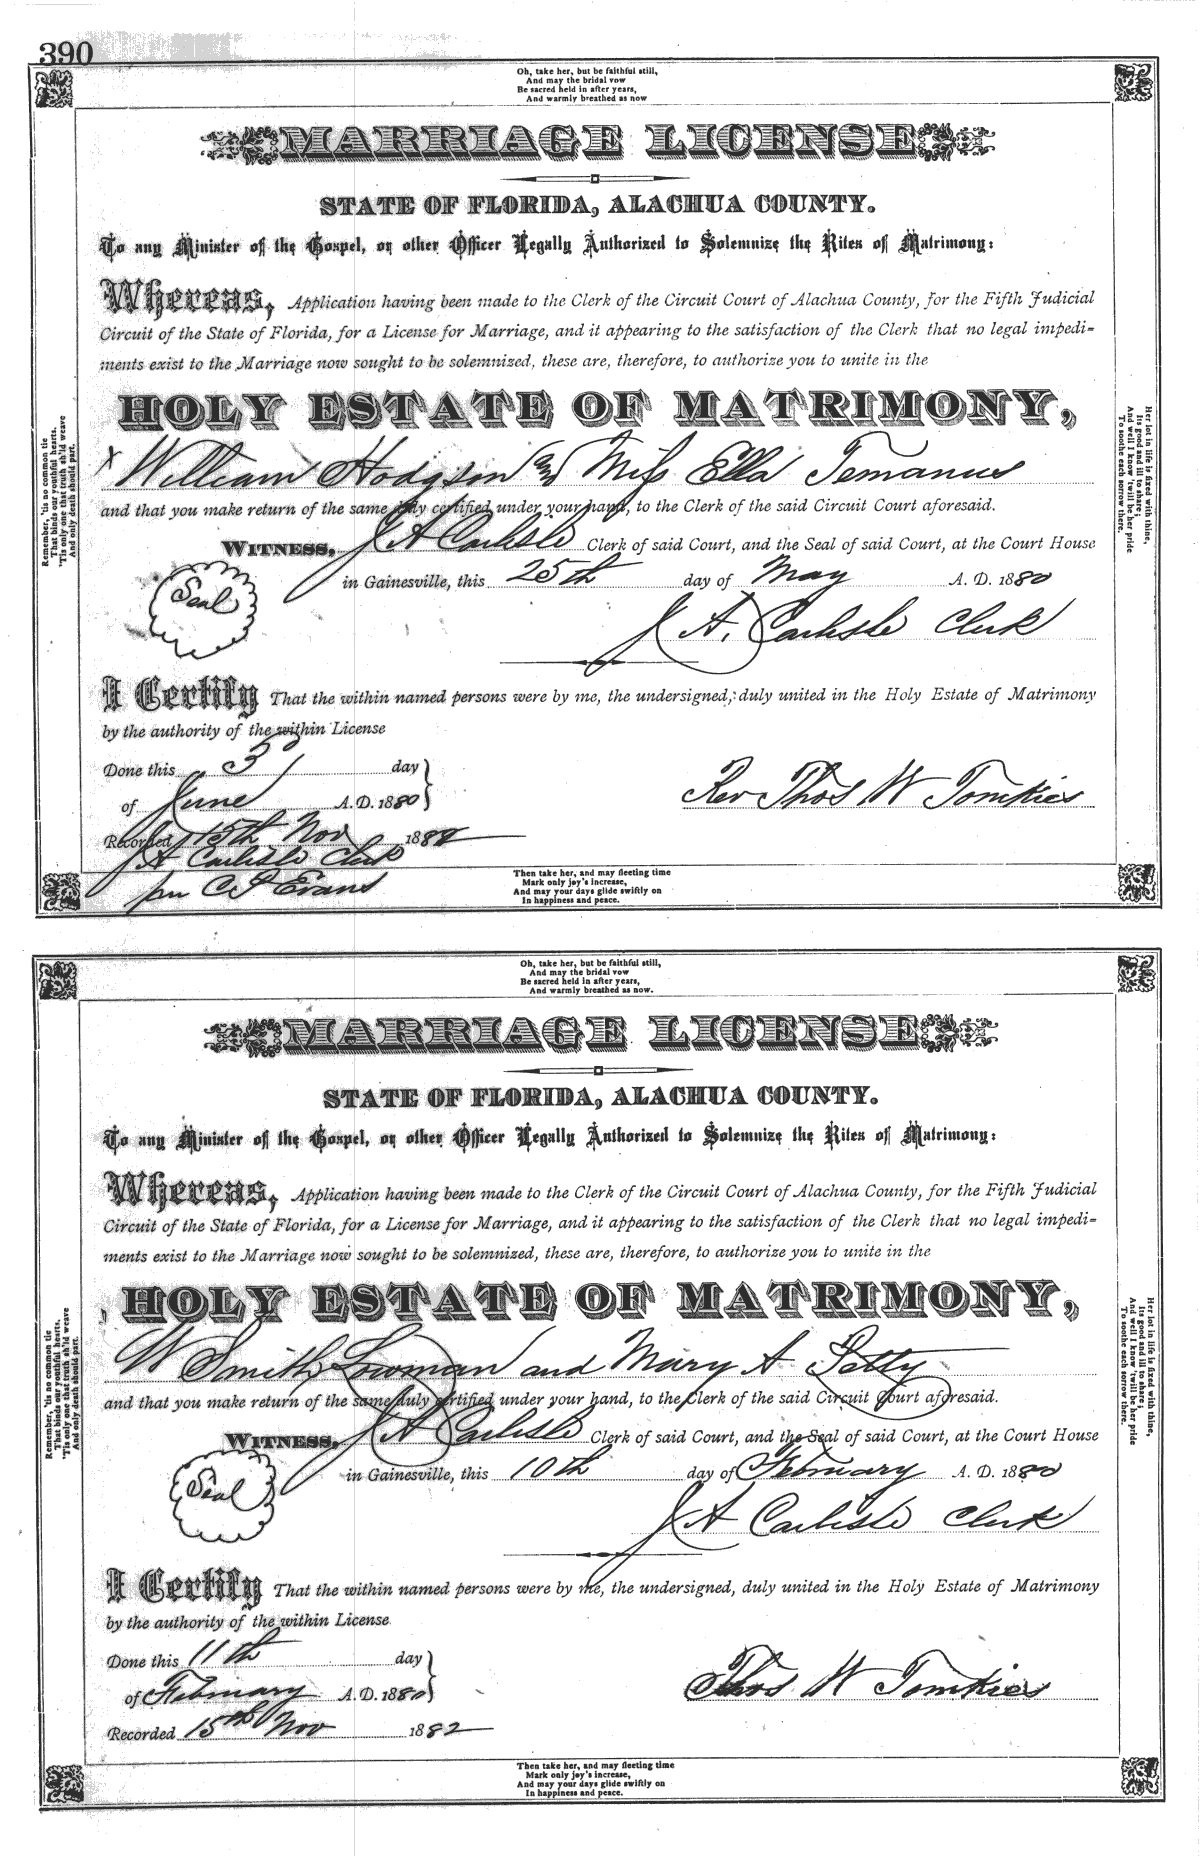 390
Oh, take her, but be faithful still,
And may the bridal vow
Be sacred held in after years,
And warmly breathed as now
MARRIAGE LICENSE
STATE OF FLORIDA, ALACHUA COUNTY.
To any Minister of the Gospel, or other Officer Legally Authorized to Solemnize the Rites of Matrimony:
Whereas, Application having been made to the Clerk of the Circuit Court of Alachua County, for the Fifth Judicial
Circuit of the State of Florida, for a License for Marriage, and it appearing to the satisfaction of the Clerk that no legal impedi-
ments exist to the Marriage now sought to be solemnized, these are, therefore, to authorize you to unite in the
HOLY ESTATE OF MATRIMONY,
x William Hodgson and Miss Ella Temanus
and that you make return of the same duly certified under your hand, to the Clerk of the said Circuit Court aforesaid.
WITNESS, J A Carlisle Clerk of said Court, and the Seal of said Court, at the Court House
Seal
in Gainesville, this 25th day of May A. D. 1880
J A. Carlisle Clerk
I Certify That the within named persons were by me, the undersigned, duly united in the Holy Estate of Matrimony
by the authority of the within License
Done this 3 day
of June A.D. 1880
Rev Thos W Tomkies
Recorded 15th Nov 1882
J A Carlisle Clerk
per C P Evans
Then take her, and may fleeting time
Mark only joy's increase,
And may your days glide swiftly on
In happiness and peace.
Remember, 'tis no common tie
That binds our youthful hearts,
'Tis only one that truth sh'ld weave
And only death should part.
Her lot in life is fixed with thine,
Its good and ill to share;
And well I know 'twill be her pride
To soothe each sorrow there.
Oh, take her, but be faithful still,
And may the bridal vow
Be sacred held in after years,
And warmly breathed as now.
MARRIAGE LICENSE
STATE OF FLORIDA, ALACHUA COUNTY.
To any Minister of the Gospel, or other Officer Legally Authorized to Solemnize the Rites of Matrimony:
Whereas, Application having been made to the Clerk of the Circuit Court of Alachua County, for the Fifth Judicial
Circuit of the State of Florida, for a License for Marriage, and it appearing to the satisfaction of the Clerk that no legal impedi-
ments exist to the Marriage now sought to be solemnized, these are, therefore, to authorize you to unite in the
HOLY ESTATE OF MATRIMONY,
W Smith Lowman and Mary A Petty
and that you make return of the same duly certified under your hand, to the Clerk of the said Circuit Court aforesaid.
WITNESS, J A Carlisle Clerk of said Court, and the Seal of said Court, at the Court House
Seal
in Gainesville, this 10th day of February A. D. 1880
J A Carlisle Clerk
I Certify That the within named persons were by me, the undersigned, duly united in the Holy Estate of Matrimony
by the authority of the within License
Done this 11th day
of February A.D. 1880
Thos W Tomkies
Recorded 15th Nov 1882
Then take her, and may fleeting time
Mark only joy's increase,
And may your days glide swiftly on
In happiness and peace.
Remember, 'tis no common tie
That binds our youthful hearts,
'Tis only one that truth sh'ld weave
And only death should part.
Her lot in life is fixed with thine,
Its good and ill to share;
And well I know 'twill be her pride
To soothe each sorrow there.